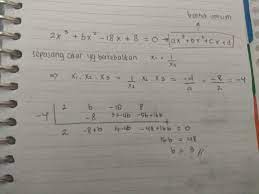 bentuk umum
2x³ + bx² - 18x + 8 = 0 → ax³ + bx² + cx + d
sepasang akar yg berkebalikan x₁ = 1/x₂
⇒ x₁ . x₂ . x₃ = 1/x₂ x₂ x₃ = -d/a = -8/2 = -4
2 b -18 8
-4 -8 32-4b -56+16b
2 -8+b 14-4b -48+16b = 0
16b = 48
b = 3 //